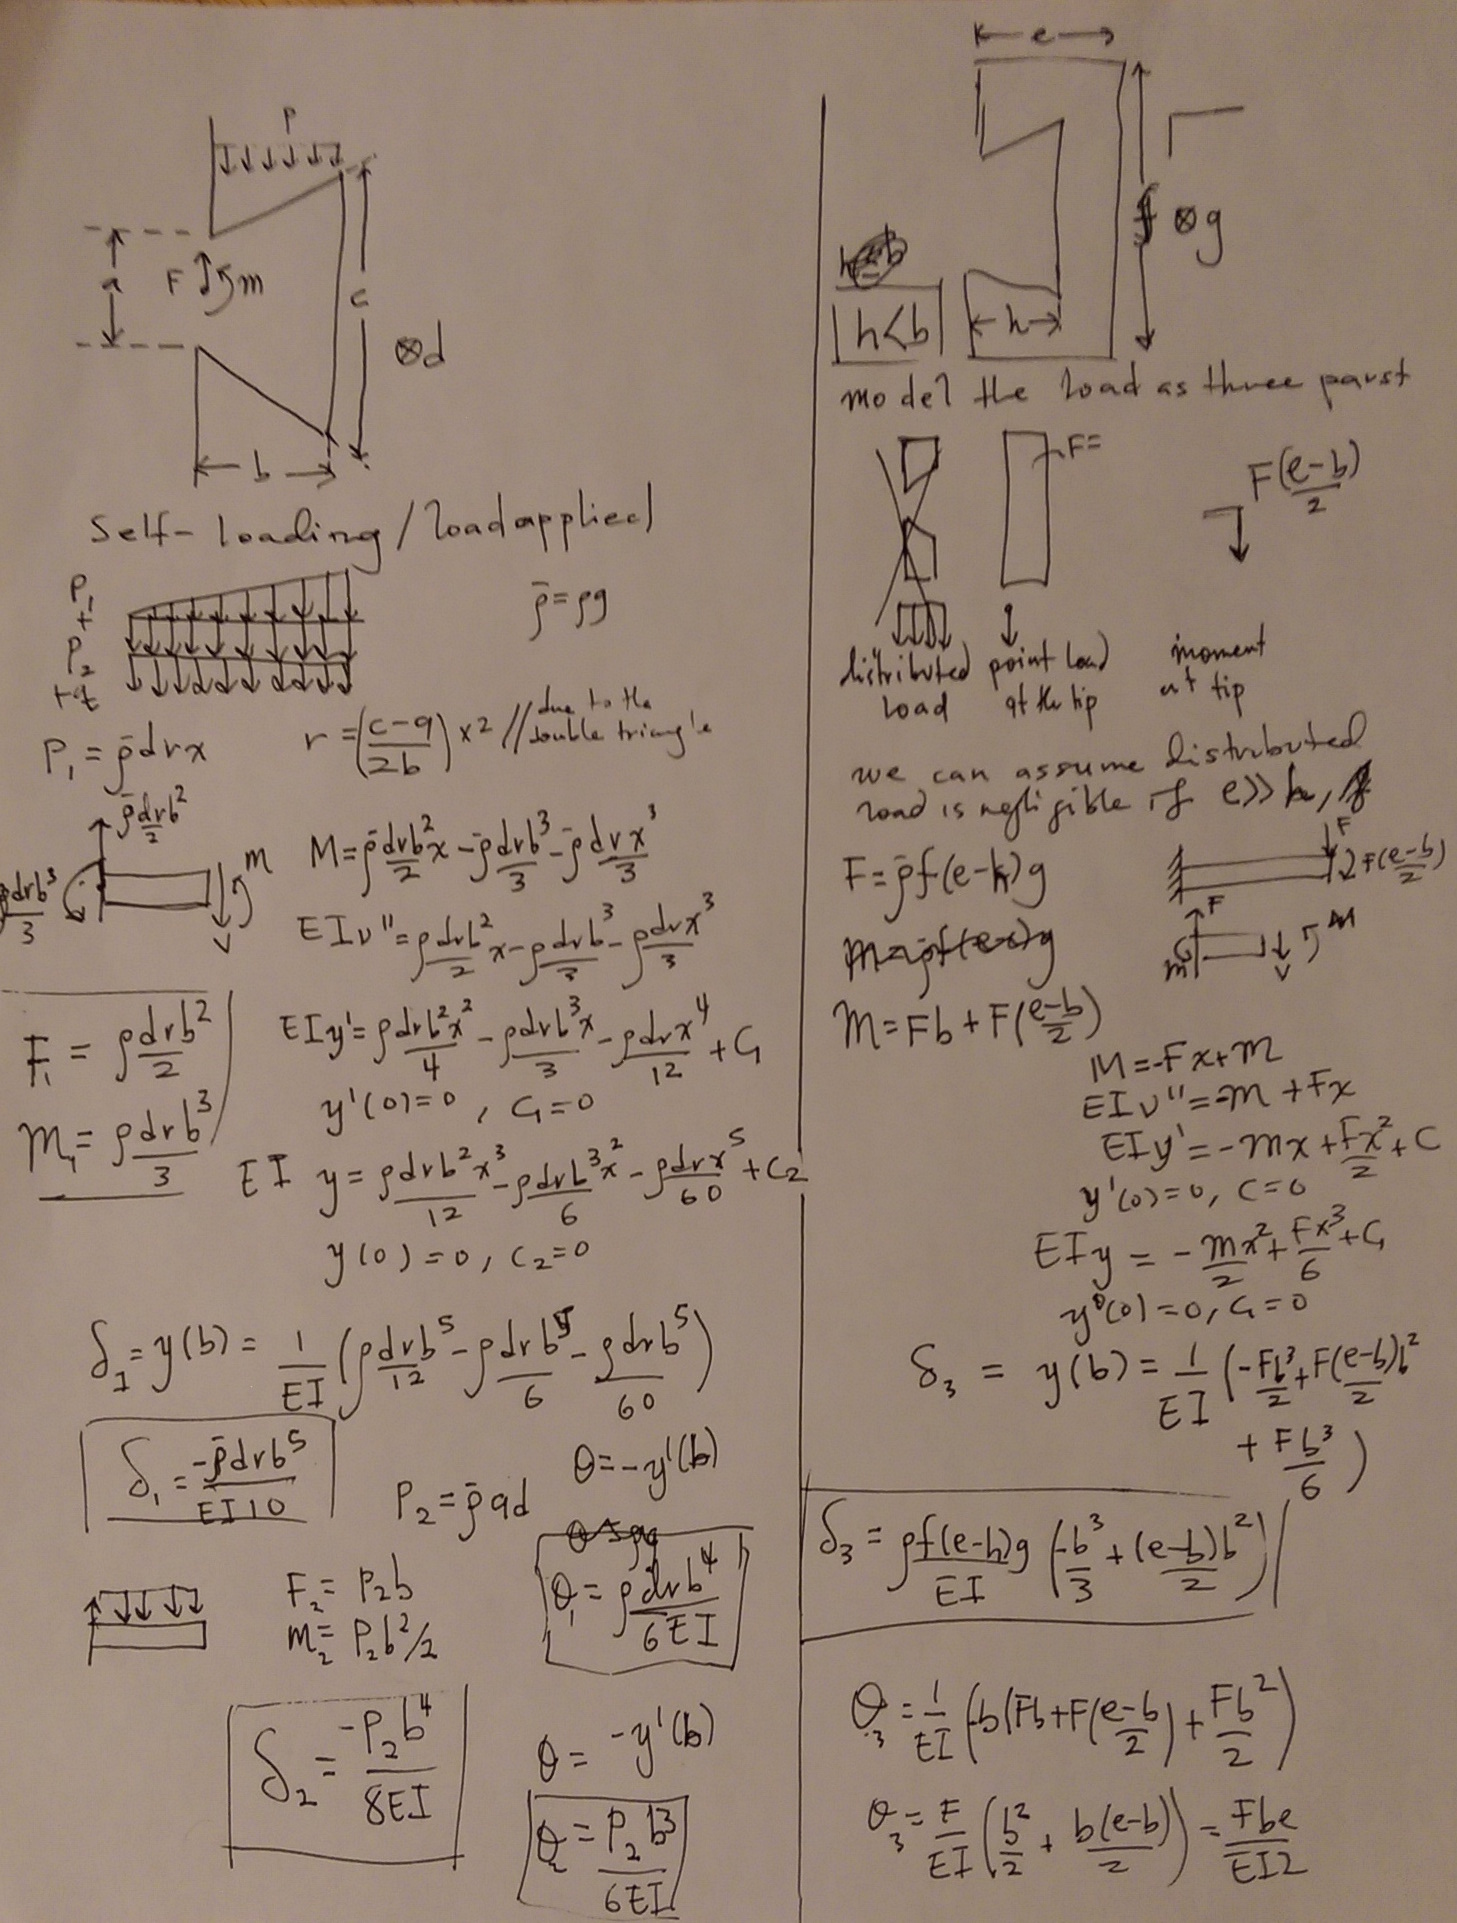 P
a
F m
c
⊗d
b
Self-loading/load applied
P₁
+
P₂
+q
ρ̄=ρg
P₁=ρ̄drx
r=((c-a)/2b)×2 // due to the double triangle
ρ̄drb²/2
ρdrb³/3
m
V
M=ρ̄drb²/2 x-ρ̄drb³/3-ρ̄drx³/3
EIν''=ρdrb²/2 x-ρdrb³/3-ρdrx³/3
F₁=ρdrb²/2
m₁=ρdrb³/3
EIy'=ρdrb²x²/4-ρdrb³x/3-ρdrx⁴/12+C₁
y'(0)=0, C₁=0
EI y=ρdrb²x³/12-ρdrb³x²/6-ρdrx⁵/60+C₂
y(0)=0, C₂=0
δ₁=y(b)=1/EI(ρdrb⁵/12-ρdrb⁵/6-ρdrb⁵/60)
δ₁=-ρ̄drb⁵/EI10
θ=-y'(b)
P₂=ρ̄ad
θ₁=ρdrb⁴/6EI
F₂=P₂b
m₂=P₂b²/2
δ₂=-P₂b⁴/8EI
θ=-y'(b)
θ₂=P₂b³/6EI
e
f ⊗g
h<b
h
model the load as three parst
F=
F(e-b)/2
distributed load
point load at the tip
moment at tip
we can assume distributed
load is negligible if e>>h,
F=ρ̄f(e-h)g
F
F(e-b)/2
F
m
V
M
M=Fb+F(e-b)/2
M=-Fx+m
EIν''=-m+Fx
EIy'=-mx+Fx²/2+C
y'(0)=0, C=0
EIy=-mx²/2+Fx³/6+C₁
y(0)=0, C₁=0
δ₃=y(b)=1/EI(-Fb³/2+F(e-b)b²/2
+Fb³/6)
δ₃=ρf(e-h)g/EI(-b³/3+(e-b)b²/2)
θ₃=1/EI(-b(Fb+F(e-b)/2)+Fb²/2)
θ₃=F/EI(b²/2+b(e-b)/2)=Fbe/EI2